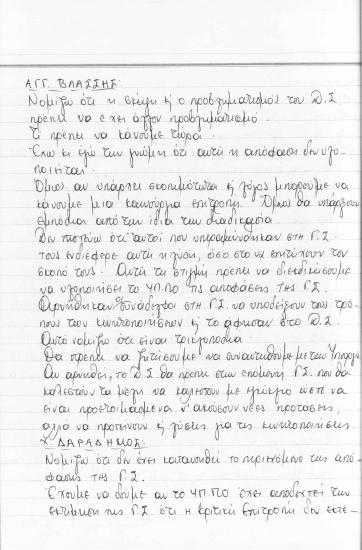 ΑΓΓ. ΒΛΑΣΣΗΣ:
Νομίζω ότι η σκέψη ή ο προβληματισμός του Δ.Σ
πρέπει να έχει άλλον προβληματισμό.
Τι πρέπει να κάνουμε τώρα.
Έχω κι εγώ την γνώμη ότι αυτή η απόφαση δεν υλο-
ποιείται.
Όμως αν υπάρχει σκοπιμότητα ή λόγος μπορούμε να
κάνουμε μια καινούργια επιτροπή. Όμως θα υπάρξουν
εμπόδια από την ίδια την διαδικασία.
Δεν πιστεύω ότι αυτοί που υπεραμύνθηκαν στη Γ.Σ
τους ενδιέφερε αυτή η λύση, όσο στο να επιτύχουν τον
σκοπό τους. Αυτή τη στιγμή πρέπει να διεκδικήσουμε
να υλοποιήσει το ΥΠ.ΠΟ τις αποφάσεις της Γ.Σ.
Αρνήθηκαν συνάδελφοι στη Γ.Σ. να υποδείξουν τους τρό-
πους των κινητοποιήσεων ή το άφησαν στο Δ.Σ.
Αυτό νομίζω ότι είναι
Θα πρέπει να ζητήσουμε να συναντηθούμε με τον Υπουργό.
Αν αρνηθεί, το Δ.Σ θα πρέπει στην επόμενη Γ.Σ. που θα
καλεστούν τα μέλη να καλεστούν με ώστε να
είναι προετοιμασμένα ν' ακούσουν νέες προτάσεις,
αλλά να προτείνουν ή λύσεις για τις κινητοποιήσεις.
Χ. ΔΑΡΑΔΗΜΟΣ:
Νομίζω ότι δεν έχει κατανοηθεί το περιεχόμενο της από-
φασης της Γ.Σ.
Έχουμε να δούμε αν το ΥΠ.ΠΟ έχει αποδεχτεί την
εκτίμηση της Γ.Σ ότι η Κριτική Επιτροπή δεν εκτέ-